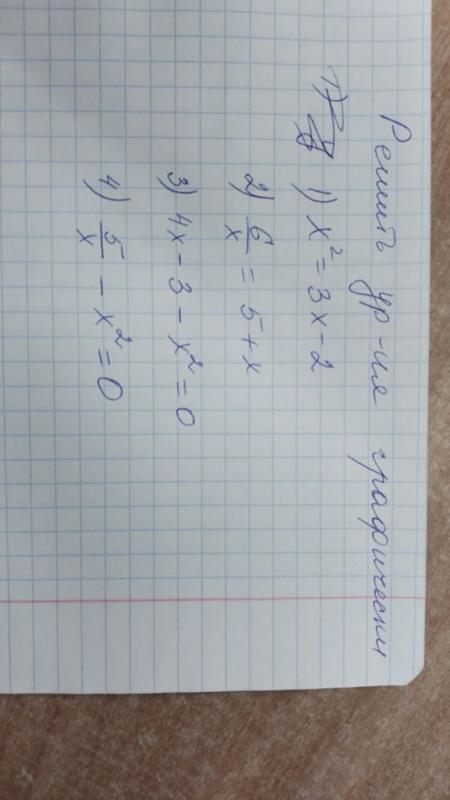 Решить ур-ия графически
1) x² = 3x - 2
2) 6/x = 5 + x
3) 4x - 3 - x² = 0
4) 5/x - x² = 0